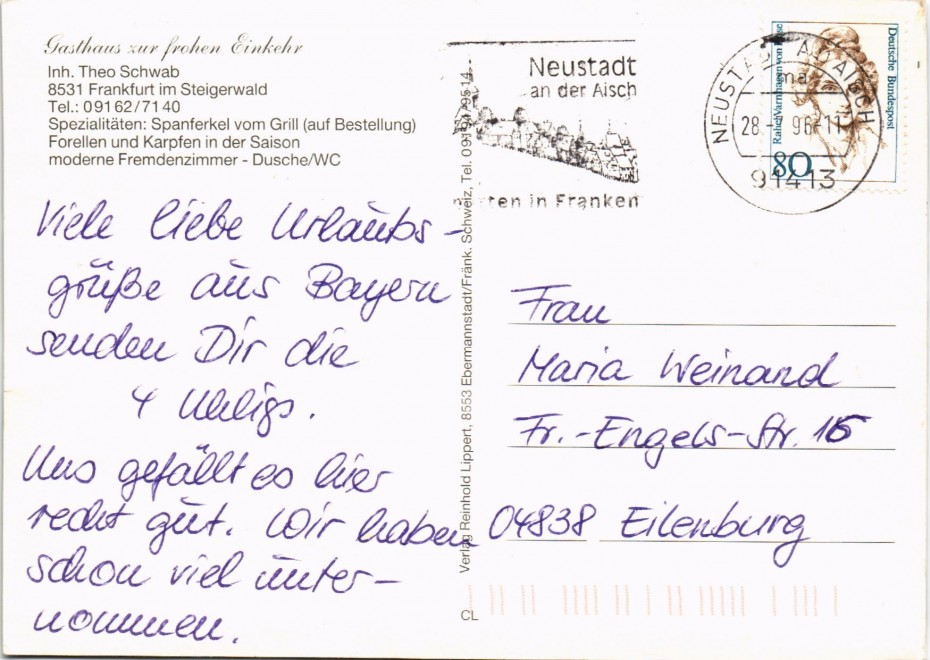 Gasthaus zur frohen Einkehr
Inh. Theo Schwab
8531 Frankfurt im Steigerwald
Tel.: 0 91 62 / 71 40
Spezialitäten: Spanferkel vom Grill (auf Bestellung)
Forellen und Karpfen in der Saison
moderne Fremdenzimmer - Dusche/WC
Viele liebe Urlaubs-
grüße aus Bayern
senden Dir die
4 Uhligs.
Uns gefällt es hier
recht gut. Wir haben
schon viel unter-
nommen.
Verlag Reinhold Lippert, 8553 Ebermannstadt/Fränk. Schweiz, Tel.
CL
Neustadt
an der Aisch
in Franken
NEUSTADT A D AISCH
ma
28.
96-11
91413
Deutsche Bundespost
Rahel Varnhagen von Ense
80
Frau
Maria Weinand
Fr.-Engels-Str. 16
04838 Eilenburg